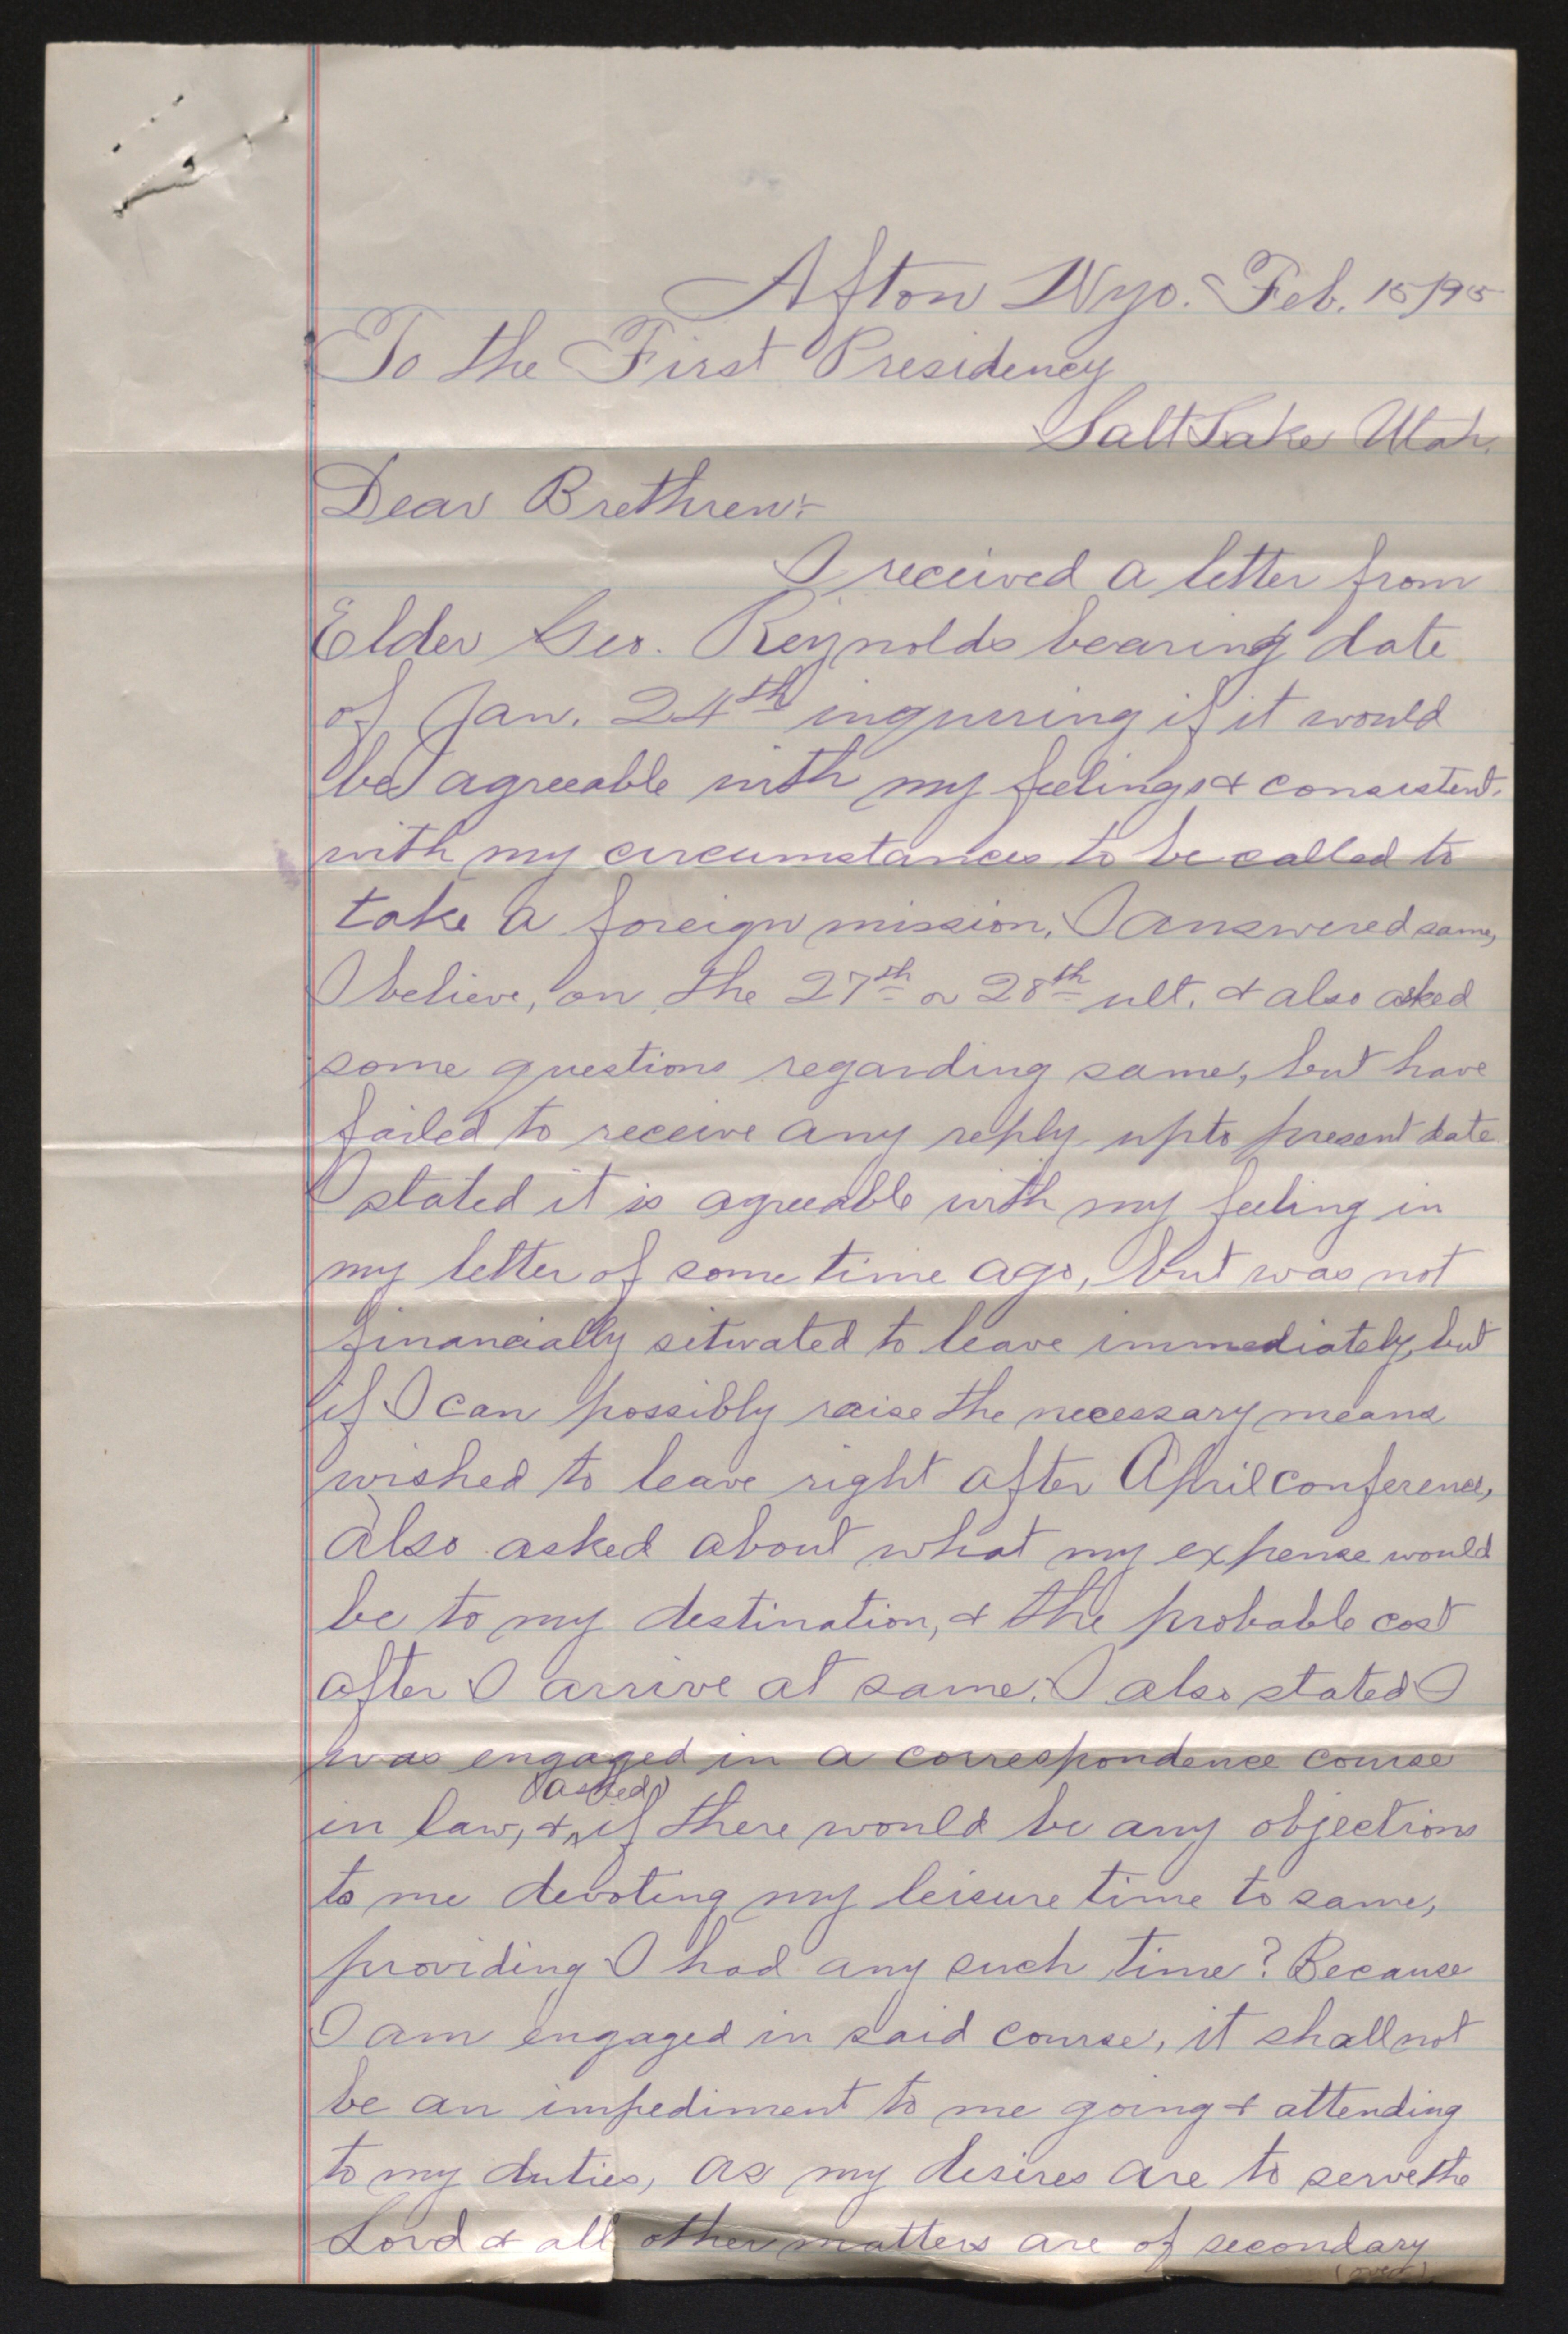 Afton Wyo. Feb. 15/95
To the First Presidency
Salt Lake Utah.
Dear Brethren:-
I received a letter from
Elder Geo. Reynolds bearing date
of Jan. 24th inquiring if it would
be agreeable with my feelings & consistent
with my circumstances to be called to
take a foreign mission. I answered same,
I believe, on the 27th or 28th ult. & also asked
some questions regarding same, but have
failed to receive any reply up to present date
I stated it is agreeable with my feeling in
my letter of some time ago, but was not
financially situated to leave immediately, but
if I can possibly raise the necessary means
wished to leave right after April conference,
also asked about what my expense would
be to my destination, & the probable cost
after I arrive at same. I also stated I
was engaged in a correspondence course
(asked)
in law, & if there would be any objections
to me devoting my leisure time to same,
providing I had any such time? Because
I am engaged in said course, it shall not
be an impediment to me going & attending
to my duties, as my desires are to serve the
Lord & all other matters are of secondary
(over)